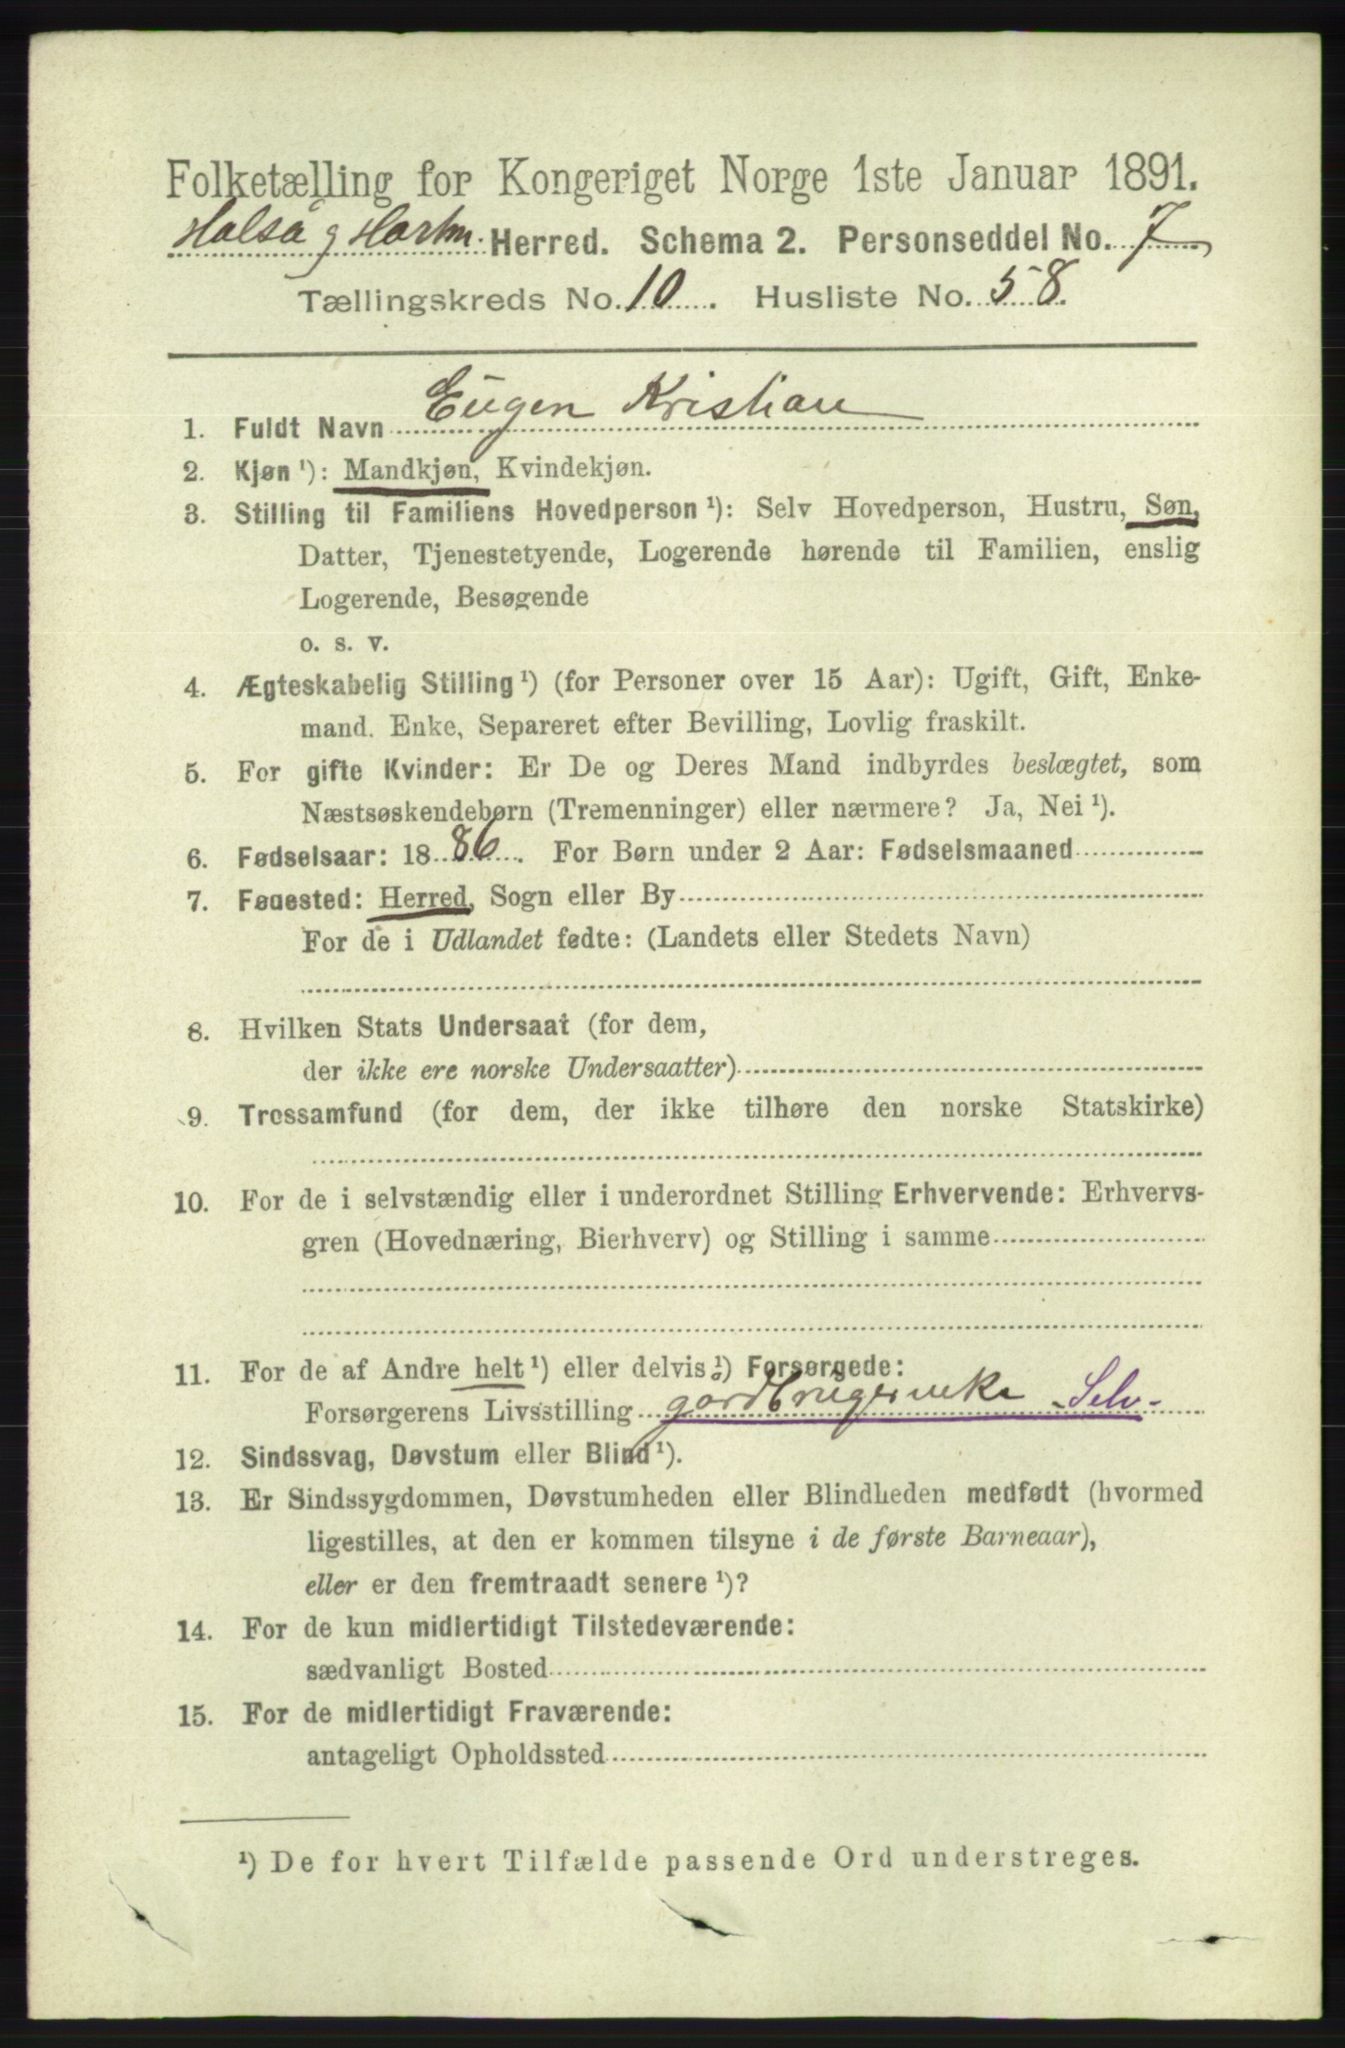 Folketælling for Kongeriget Norge 1ste Januar 1891.
Halså g Hartm. Herred. Schema 2. Personseddel No. 7
Tællingskreds No. 10. Husliste No. 58.
1. Fuldt Navn Eugen Kristian
2. Kjøn ¹): Mandkjøn, Kvindekjøn.
3. Stilling til Familiens Hovedperson ¹): Selv Hovedperson, Hustru, Søn,
Datter, Tjenestetyende, Logerende hørende til Familien, enslig
Logerende, Besøgende
o. s. v.
4. Ægteskabelig Stilling ¹) (for Personer over 15 Aar): Ugift, Gift, Enke-
mand. Enke, Separeret efter Bevilling, Lovlig fraskilt.
5. For gifte Kvinder: Er De og Deres Mand indbyrdes beslægtet, som
Næstsøskendebørn (Tremenninger) eller nærmere? Ja, Nei ¹).
6. Fødselsaar: 1886. For Børn under 2 Aar: Fødselsmaaned
7. Fødested: Herred, Sogn eller By
For de i Udlandet fødte: (Landets eller Stedets Navn)
8. Hvilken Stats Undersaat (for dem,
der ikke ere norske Undersaatter)
9. Trossamfund (for dem, der ikke tilhøre den norske Statskirke)
10. For de i selvstændig eller i underordnet Stilling Erhvervende: Erhvervs-
gren (Hovednæring, Bierhverv) og Stilling i samme
11. For de af Andre helt ¹) eller delvis ¹) Forsørgede:
Forsørgerens Livsstilling gårdbrugerenke -Selv-
12. Sindssvag, Døvstum eller Blind ¹).
13. Er Sindssygdommen, Døvstumheden eller Blindheden medfødt (hvormed
ligestilles, at den er kommen tilsyne i de første Barneaar),
eller er den fremtraadt senere ¹)?
14. For de kun midlertidigt Tilstedeværende:
sædvanligt Bosted
15. For de midlertidigt Fraværende:
antageligt Opholdssted
¹) De for hvert Tilfælde passende Ord understreges.